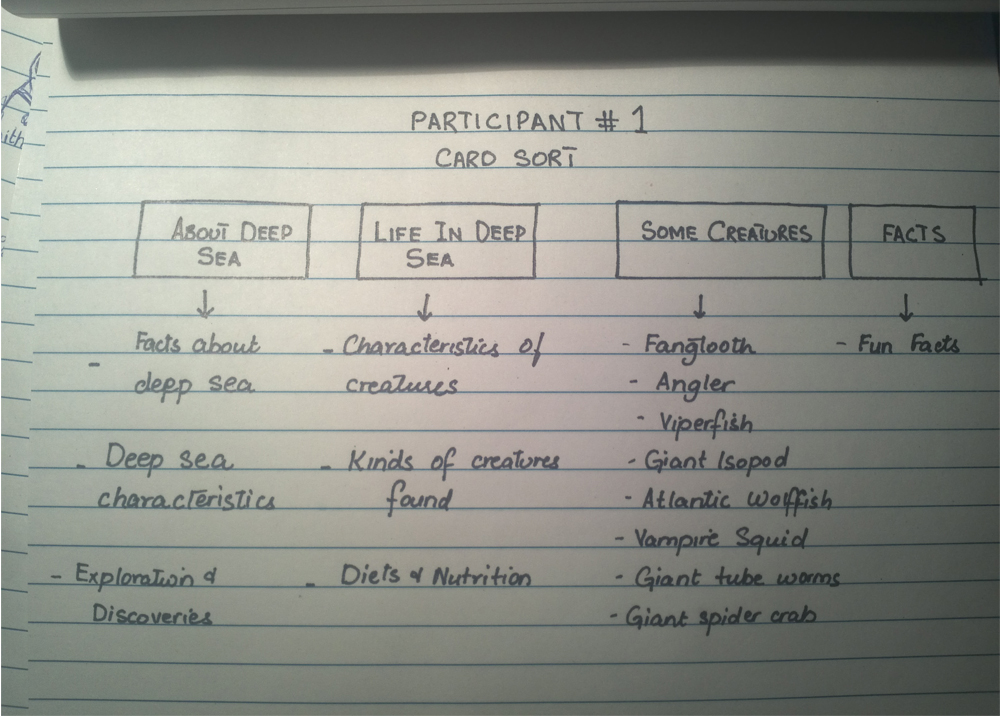 ith
PARTICIPANT # 1
CARD SORT
ABOUT DEEP
SEA
Facts about
depp sea
- Deep sea
characteristics
- Exploration &
Discoveries
LIFE IN DEEP
SEA
- Characteristics of
creatures
- Kinds of creatures
found
- Diets & Nutrition
SOME CREATURES
- Fangtooth
- Angler
- Viperfish
- Giant Isopod
- Atlantic wolffish
- Vampire Squid
- Giant tube worms
- Giant spider crab
FACTS
- Fun Facts